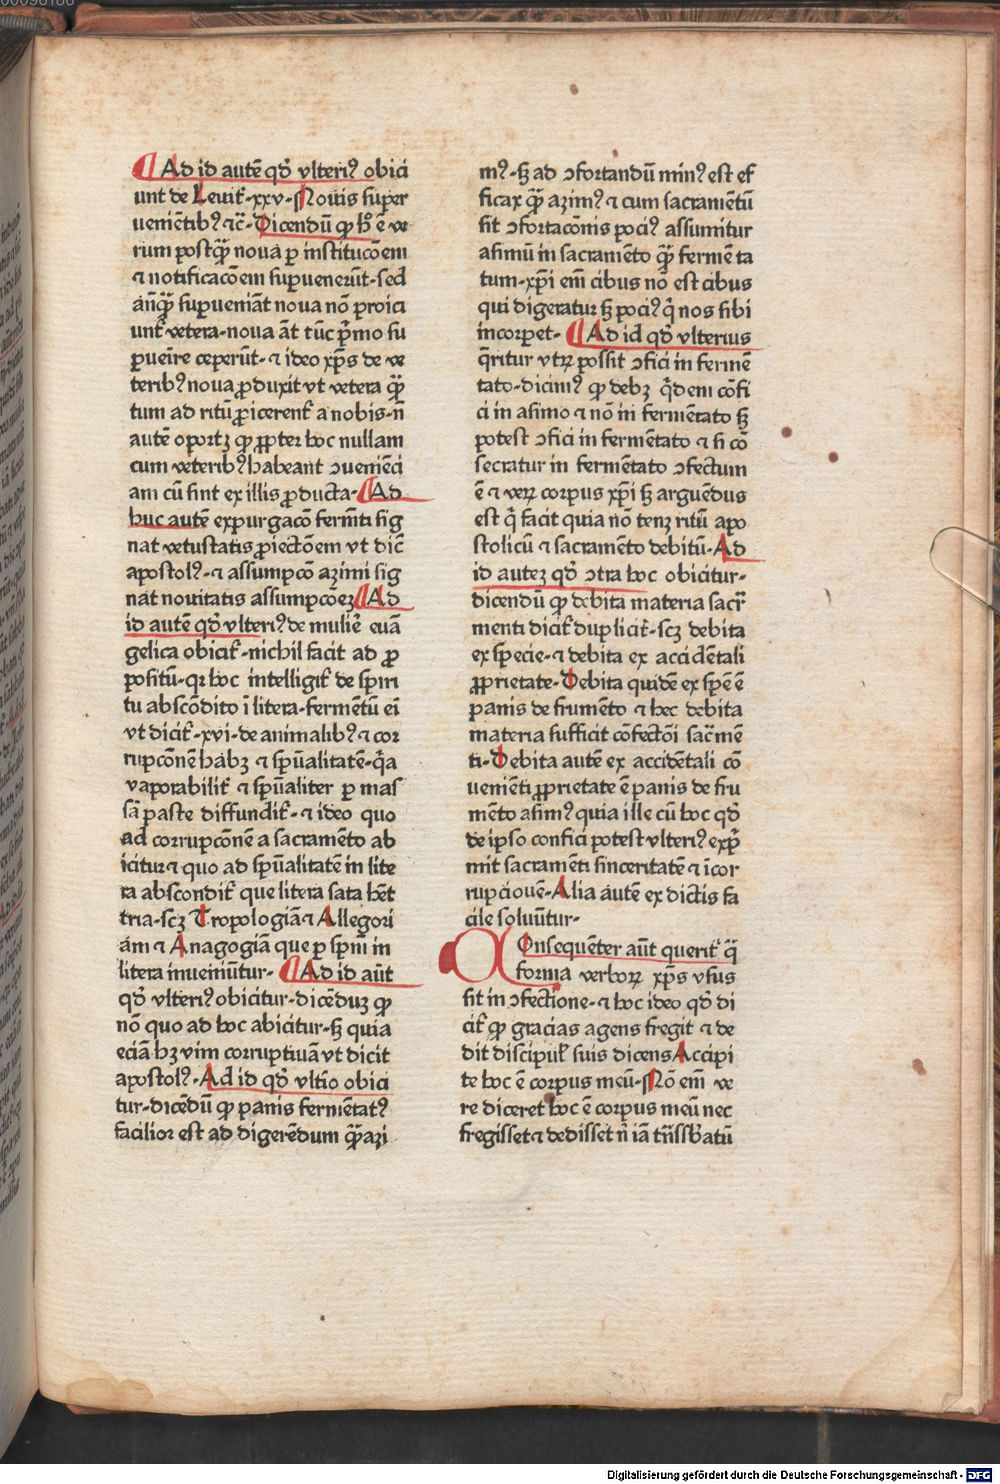 Ad id autē qđ vlteriꝰ obici
unt de Leuit᷑·xxv·Nouis super
uenientibꝰ ⁊c̄·Dicendū ꝙ hͦ ē ve
rum postq̄ꝫ noua ꝑ institucōem
⁊ notificacōem supuenerūt·sed
anq̄ꝫ supueniāt noua nō proici
unt᷑ vetera·noua āt tūc pͥmo su
pueīre ceperūt·⁊ ideo xp̄s de ve
teribꝰ noua ꝓduxit vt vetera q̄ꝫ
tum ad ritū ꝓicerent᷑ a nobis·ñ
autē oportꝫ ꝙ ꝓpter hoc nullam
cum veteribꝰ habeant ɔueniēci
am cū sint ex illis ꝓducta·Ad
huc autē expurgacō fermti sig
nat vetustatis ꝓiectōem vt dic̄
apostolꝰ·⁊ assumpcō azimi sig
nat nouitatis assumpcōeꝫ Ad
id autē qđ vlteriꝰ de mulie᷑ euā
gelica obicit᷑·nichil facit ad ꝓ
positū·qꝛ hoc intelligit᷑ de spiri
tu abscōdito ī litera·fermētū ei
vt dicit᷑·xvi·de animalibꝰ ⁊ cor
rupcōnē habꝫ ⁊ spūalitatē·q̄a
vaporabilit᷑ ⁊ spūaliter ꝑ mas
sā paste diffundit᷑·⁊ ideo quo
ad corrupcōnē a sacramēto ab
icitur ⁊ quo ad spūalitatē in lite
ra abscondit᷑ que litera sata hēt
tria·scꝫ Tropologiā ⁊ Allegori
am ⁊ Anagogiā que ꝑ spm̄ in
litera inueniūtur· Ad id aūt
qđ vlteriꝰ obicitur·dicēduꝫ ꝙ
nō quo ad hoc abicitur·sꝫ quia
eciā hꝫ vim corruptiuā vt dicit
apostolꝰ·Ad id qđ vltīo obici
tur·dicēdū ꝙ panis fermētatꝰ
facilior est ad digerēdum q̄ꝫ azi
mꝰ·sꝫ ad ɔfortandū minꝰ est ef
ficax q̄ꝫ azimꝰ ⁊ cum sacramētū
sit ɔfortacōnis pociꝰ assumitur
asimū in sacramēto q̄ꝫ fermē ta
tum·xp̄i em̄ cibus nō est cibus
qui digeratur sꝫ pociꝰ q̄ nos sibi
incorpet· Ad id qđ vlterius
q̄ritur vtꝝ possit ɔfici in fermē
tato·dicimꝰ ꝙ debꝫ q̄dem cōfi
ci in asimo ⁊ nō in fermētato sꝫ
potest ɔfici in fermētato ⁊ si cō
secratur in fermētato ɔfectum
ē ⁊ veꝝ corpus xp̄i sꝫ arguēdus
est q̄ facit quia nō tenꝫ ritū apo
stolicū ⁊ sacramēto debitū·Ad
id auteꝫ qđ ɔtra hoc obicitur·
dicendū ꝙ debita materia sacr̄
menti dicit᷑ duplicit᷑·scꝫ debita
ex specie·⁊ debita ex accidētali
ꝓprietate·Debita quidē ex spē ē
panis de frumēto ⁊ hec debita
materia sufficit cōfectōi sac̄mē
ti·Debita autē ex accidētali cō
uenienti ꝓprietate ē panis de fru
mēto asimꝰ quia ille cū hoc qđ
de ipso confici potest vlteriꝰ expͥ
mit sacramēti sinceritatē ⁊ īcor
rupciouē·Alia autē ex dictis fa
cile soluūtur·
COnsequēter aūt querit᷑ q̄
forma verboꝝ xp̄s vsus
sit in ɔfectione·⁊ hoc ideo qđ di
cit᷑ ꝙ gracias agens fregit ⁊ de
dit discipul᷑ suis dicens Accipi
te hoc ē corpus meū·Nō em̄ ve
re diceret hoc ē corpus meū nec
fregisset ⁊ dedisset n̄ iā tn̄ssb̄atū
Digitalisierung gefördert durch die Deutsche Forschungsgemeinschaft - DFG